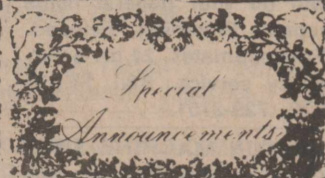 Special
Announcements